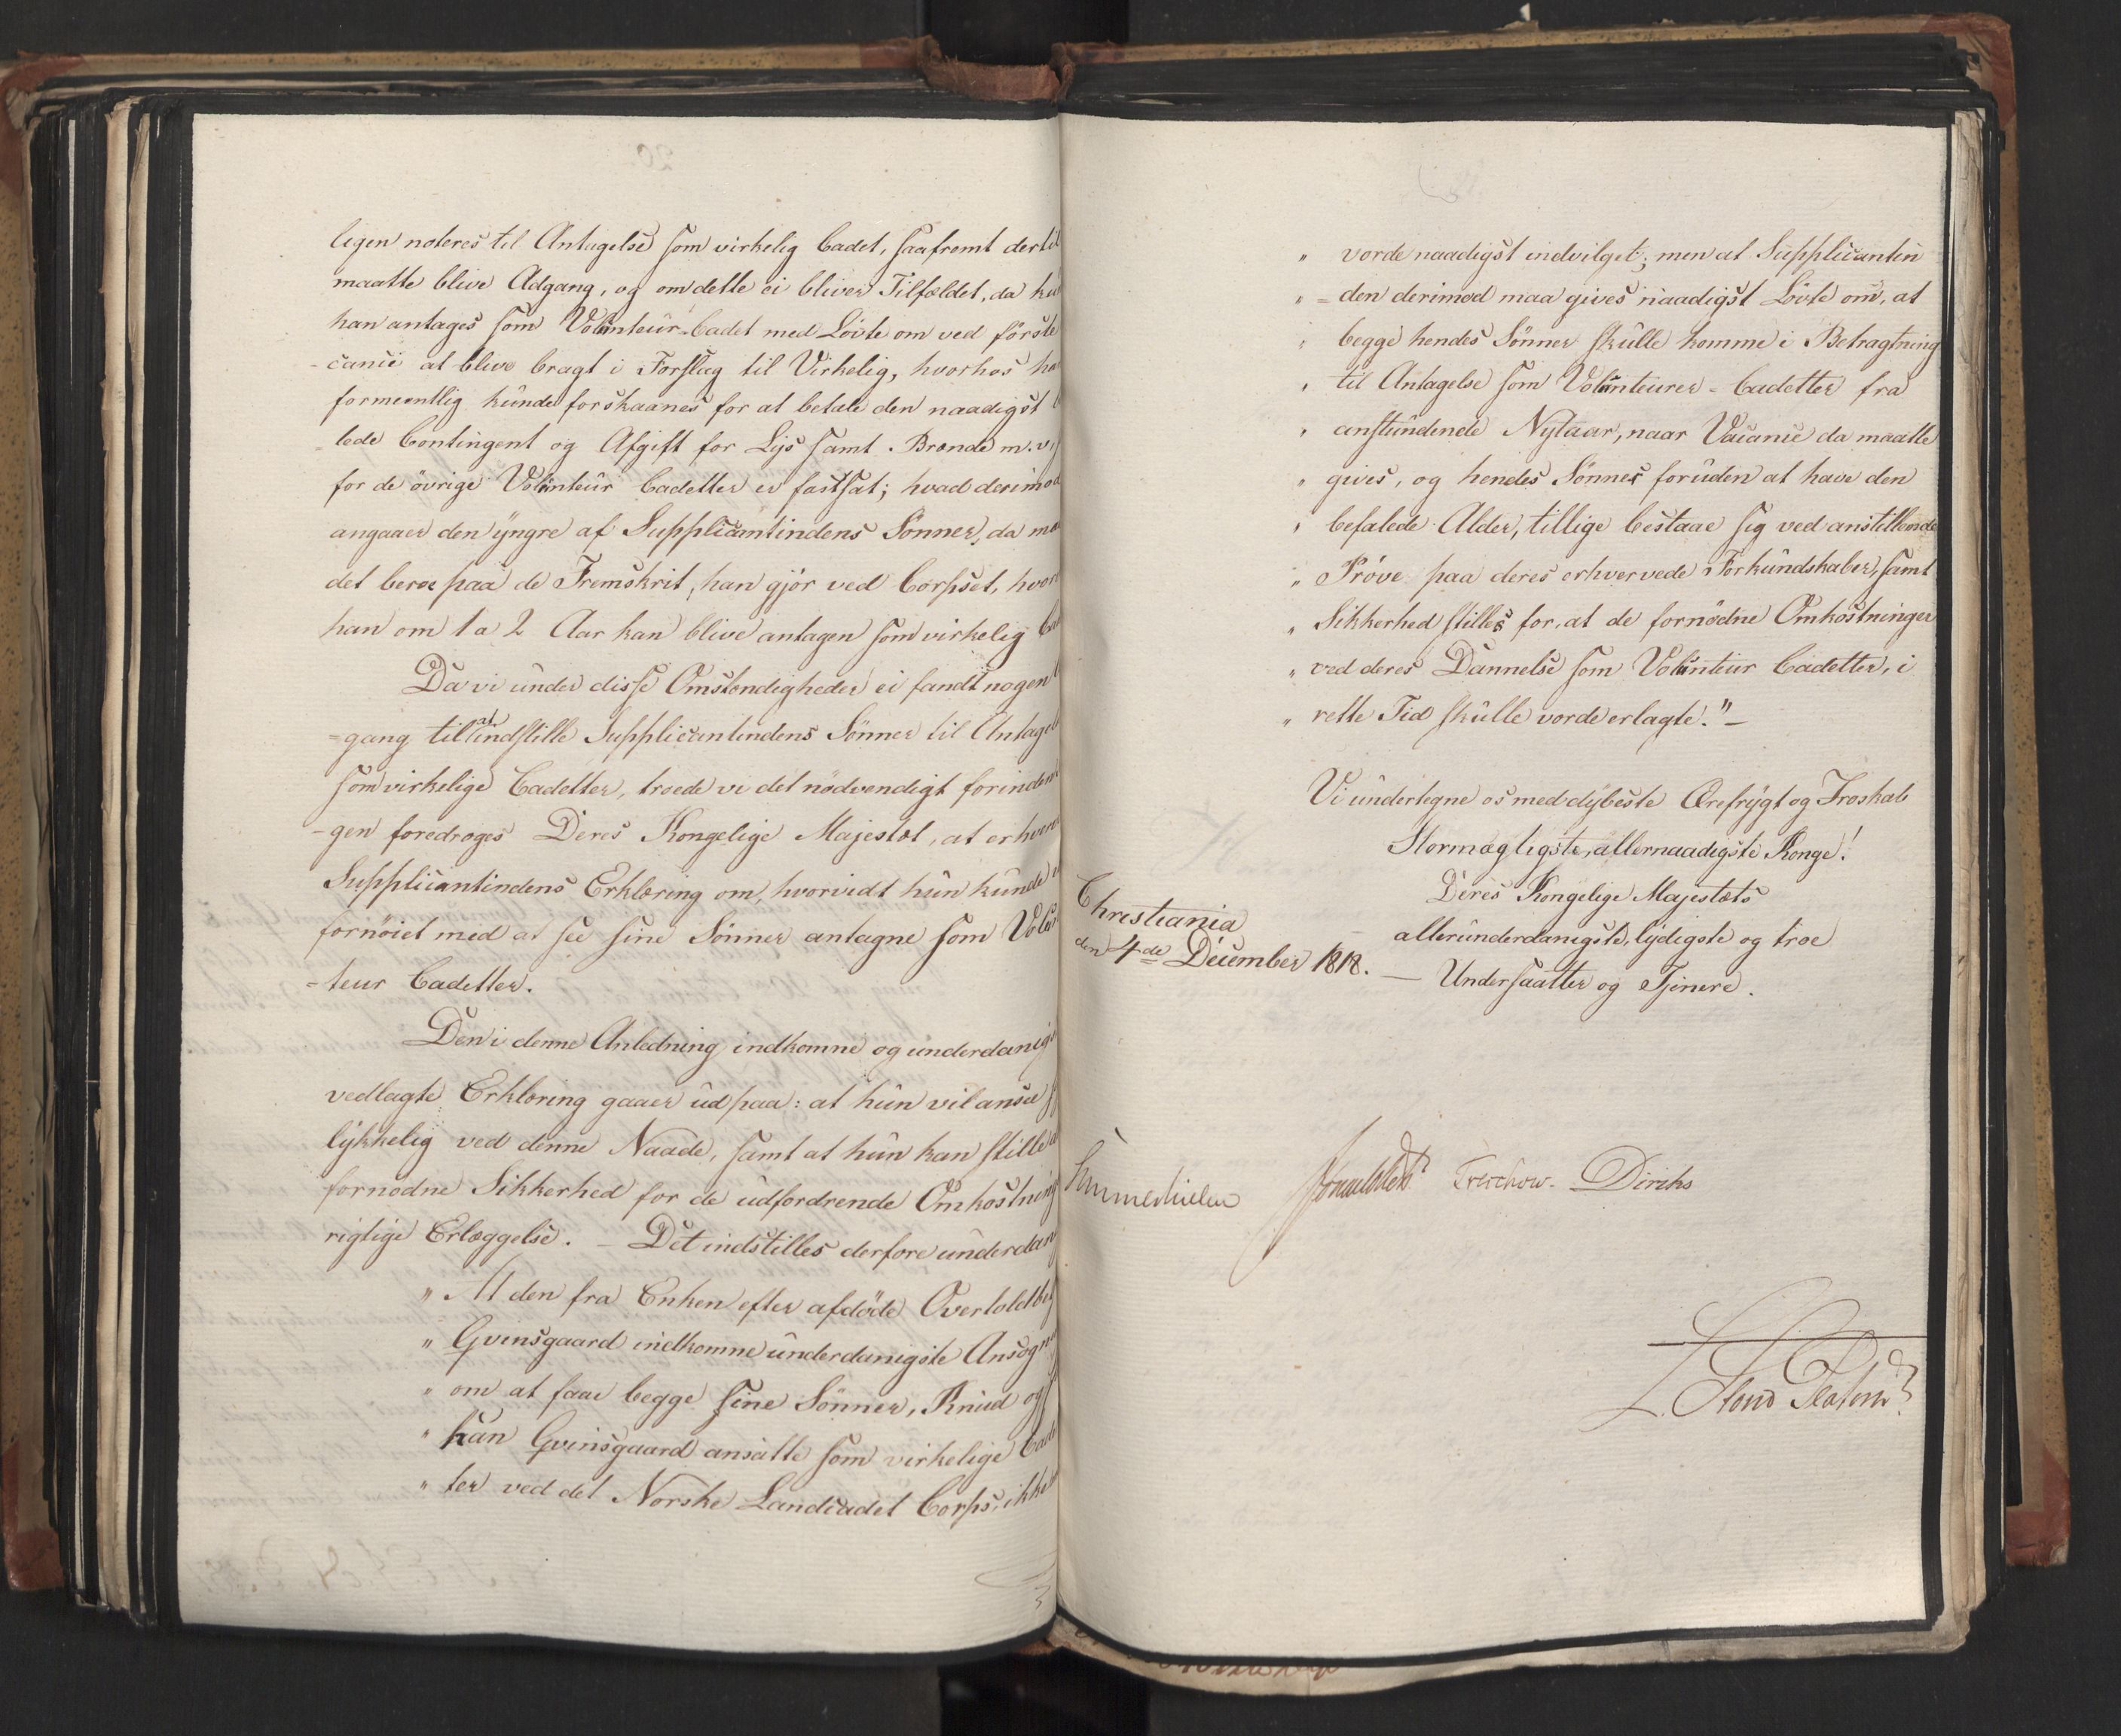 ligen noteres til Antagelse som virkelig Cadet, saafremt dertil
maatte blive Adgang, og om dette ei bliver Tilfældet, da
han antages som Volunteur-Cadet med Løvte om ved første
-cance at blive bragt i Forslag til Virkelig, hvorhos
formeentlig kunde forskaanes for at betale den naadigst
-lede Contingent og Afgift for Lys samt Brænde m. v.
for de øvrige Volunteur Cadetter er fastsat; hvad derimod
angaaer den yngre af Supplicantindens Sønner, da
det beroe paa de Fremskrit, han gjør ved Corpset,
han om 1 a 2 Aar kan blive antagen som virkelig
Da vi under disse Omstændigheder ei fandt nogen
-gang til at indstille Supplicantindens Sønner til
som virkelige Cadetter, troede vi det nødvendigt forinden
-gen foredroges Deres Kongelige Majestæt, at
Supplicantindens Erklæring om, hvorvidt hun kunde
fornøiet med at see sine Sønner antagne som
-teur Cadetter.
Den i denne Anledning indkomne og underdanigst
vedlagte Erklæring gaaer ud paa: at hun vil ansee
lykkelig ved denne Naade, samt at hun kan stille
fornødne Sikkerhed for de udfordrende
rigtige Erlæggelse. – Det indstilles derfore
" At den fra Enken efter afdøde
" Qvinsgaard indkomne underdanigste
" om at faae begge sine Sønner, Knud og
" han Qvinsgaard ansatte som virkelige
" ter ved det Norske Landcadet Corps, ikke
" vorde naadigst indvilget; men at Supplicantin
" =den derimod maa gives naadigst Løvte om, at
" begge hendes Sønner skulle komme i Betragtning
" til Antagelse som Volunteurer-Cadetter fra
" anstundende Nytaar, naar Vacance da maatte
" gives, og hendes Sønner foruden at have den
" befalede Alder, tillige bestaae sig ved anstillende
" Prøve paa deres erhvervede Forkundskaber, samt
" Sikkerhed stilles for, at de fornødne Omkostninger
" ved deres Dannelse som Volunteur Cadetter, i
" rette Tid skulle vorde erlagte." –
Vi undertegne os med dybeste Ærefrygt og Troskab
Stormægtigste, allernaadigste Konge!
Deres Kongelige Majestæts
allerunderdanigste, lydigste og troe
Undersaatter og Tjenere.
Christiania
den 4de December 1818.
Sommerhielm Treschow. Diriks